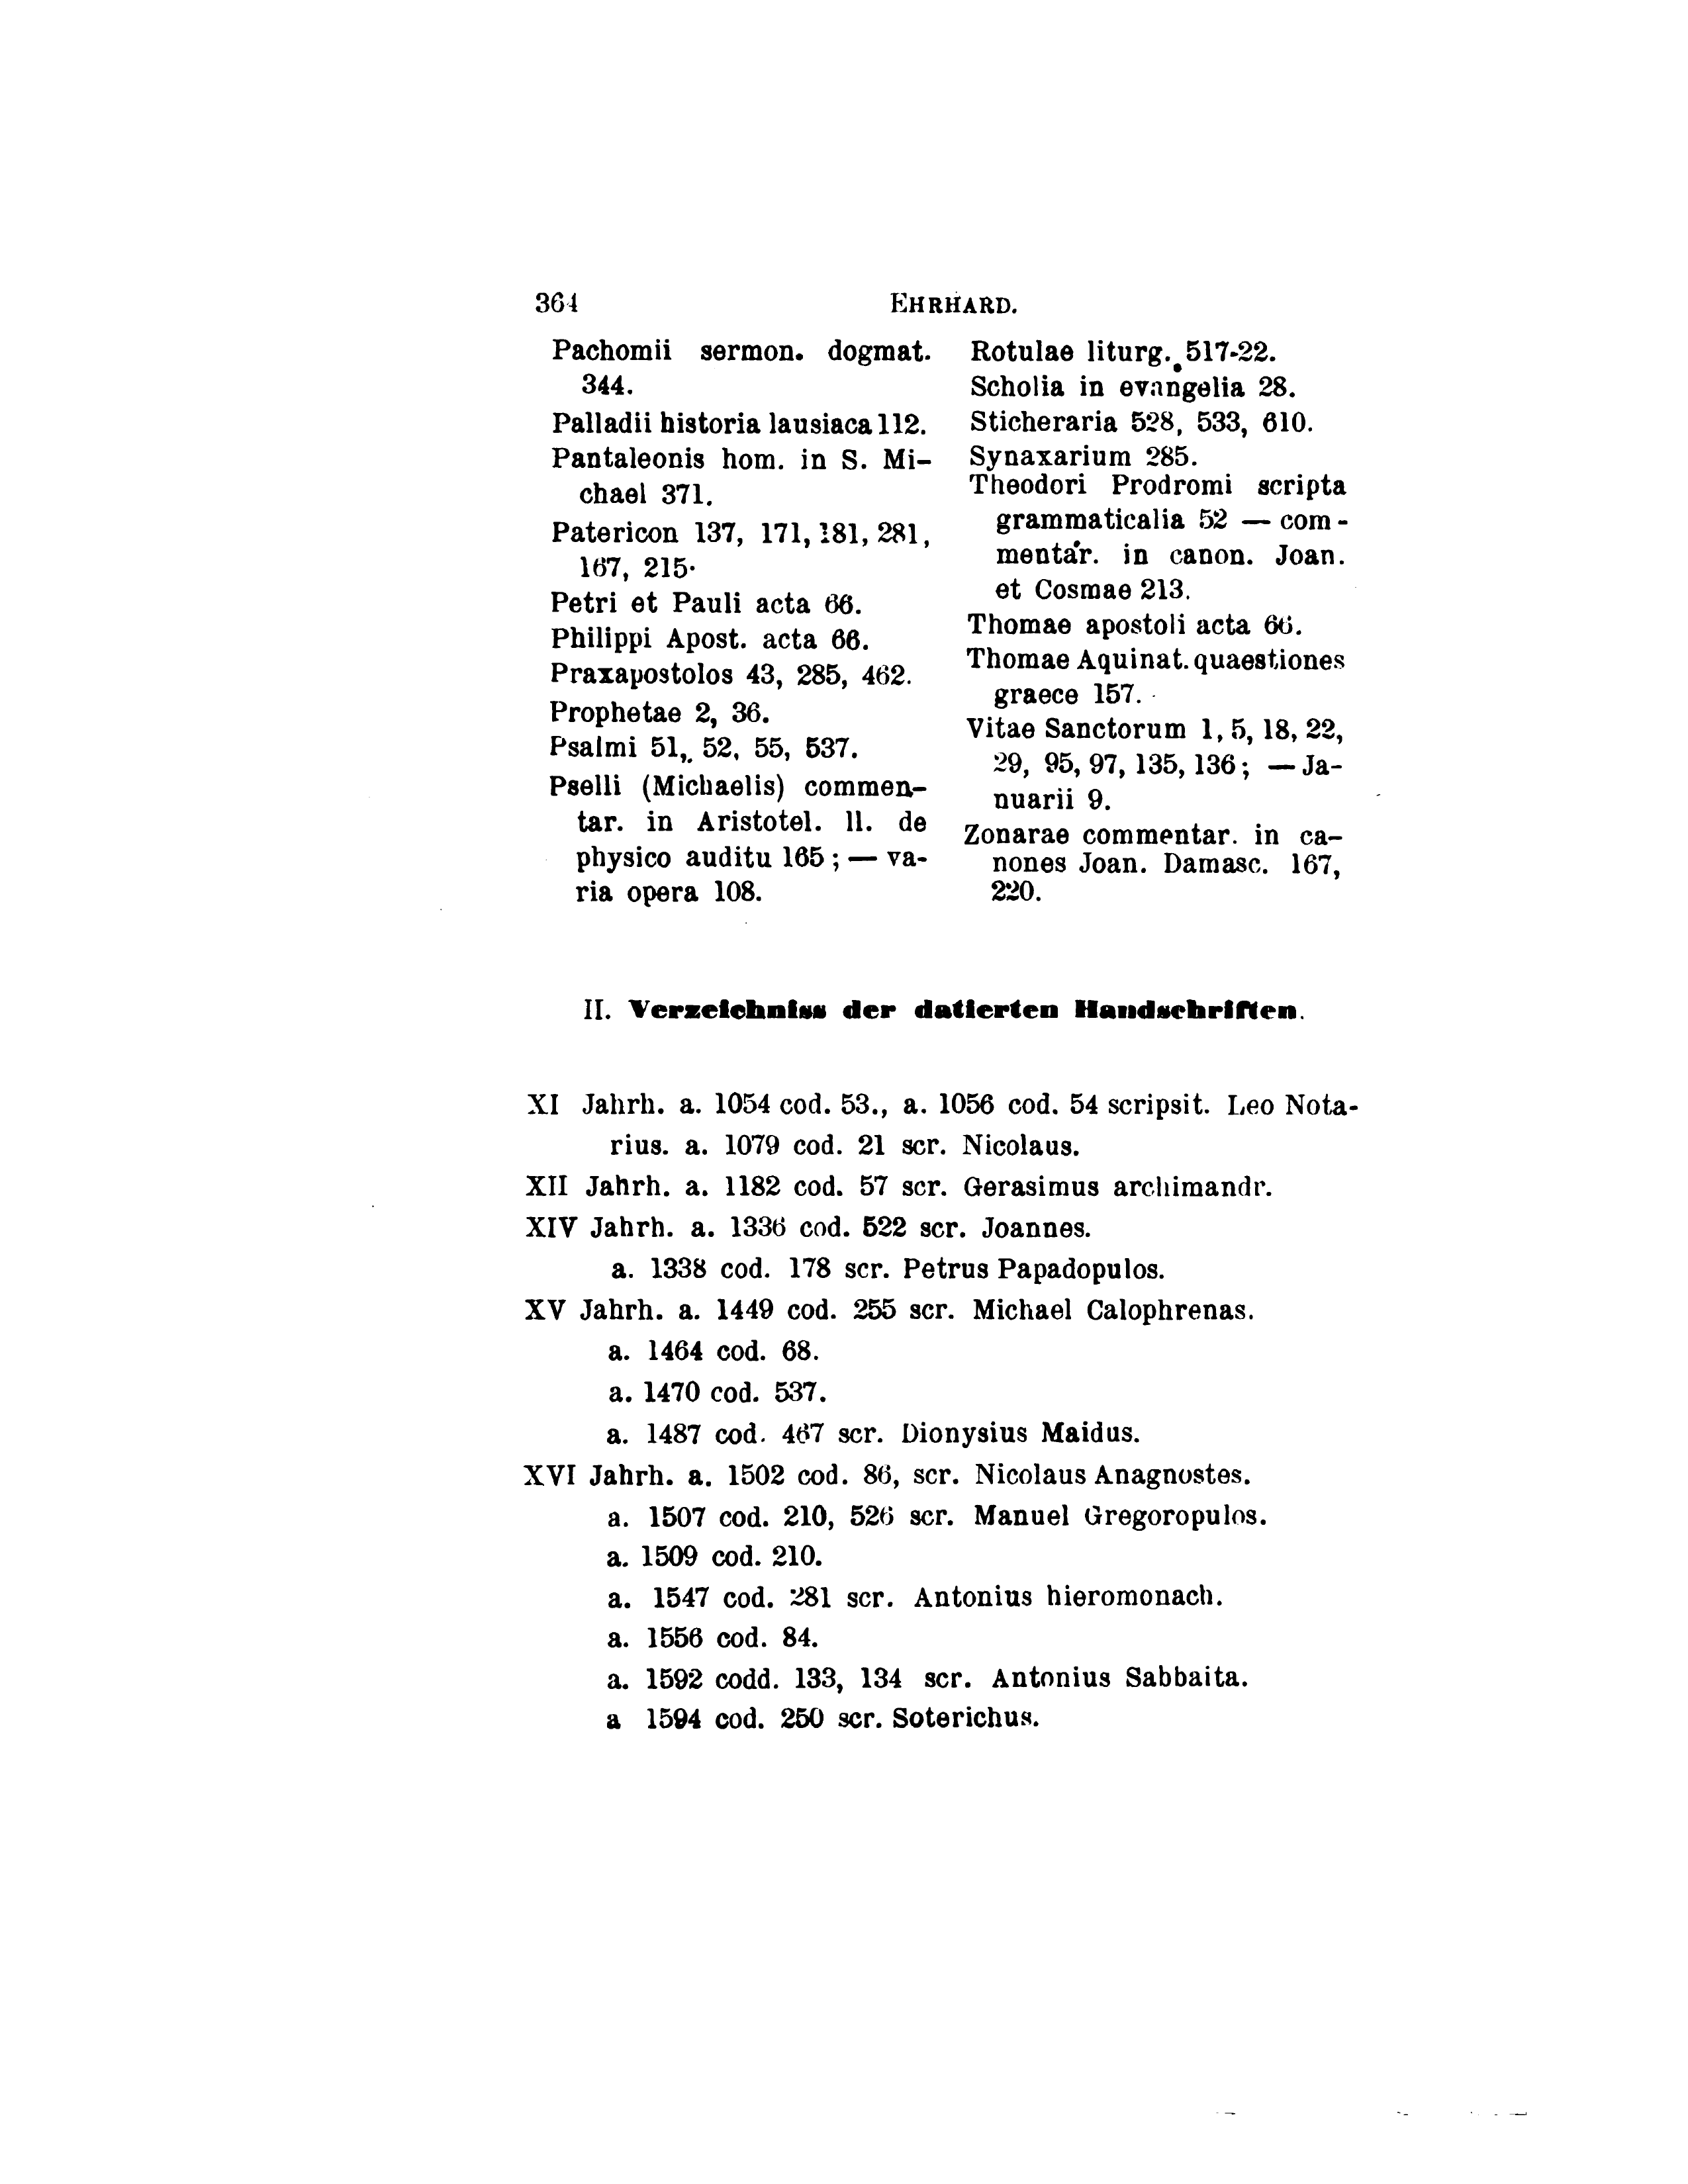 364 EHRHARD.
Pachomii sermon. dogmat.
344.
Palladii historia lausiaca 112.
Pantaleonis hom. in S. Mi-
chael 371.
Patericon 137, 171, 181, 281,
167, 215.
Petri et Pauli acta 66.
Philippi Apost. acta 66.
Praxapostolos 43, 285, 462.
Prophetae 2, 36.
Psalmi 51, 52, 55, 537.
Pselli (Michaelis) commen-
tar. in Aristotel. ll. de
physico auditu 165 ; — va-
ria opera 108.
Rotulae liturg. 517-22.
Scholia in evangelia 28.
Sticheraria 528, 533, 610.
Synaxarium 285.
Theodori Prodromi scripta
grammaticalia 52 — com-
mentar. in canon. Joan.
et Cosmae 213.
Thomae apostoli acta 66.
Thomae Aquinat. quaestiones
graece 157.
Vitae Sanctorum 1, 5, 18, 22,
29, 95, 97, 135, 136 ; — Ja-
nuarii 9.
Zonarae commentar. in ca-
nones Joan. Damasc. 167,
220.
II. Verzeichniss der datierten Handschriften.
XI Jahrh. a. 1054 cod. 53., a. 1056 cod. 54 scripsit. Leo Nota-
rius. a. 1079 cod. 21 scr. Nicolaus.
XII Jahrh. a. 1182 cod. 57 scr. Gerasimus archimandr.
XIV Jahrh. a. 1336 cod. 522 scr. Joannes.
a. 1338 cod. 178 scr. Petrus Papadopulos.
XV Jahrh. a. 1449 cod. 255 scr. Michael Calophrenas.
a. 1464 cod. 68.
a. 1470 cod. 537.
a. 1487 cod. 467 scr. Dionysius Maidus.
XVI Jahrh. a. 1502 cod. 86, scr. Nicolaus Anagnostes.
a. 1507 cod. 210, 526 scr. Manuel Gregoropulos.
a. 1509 cod. 210.
a. 1547 cod. 281 scr. Antonius hieromonach.
a. 1556 cod. 84.
a. 1592 codd. 133, 134 scr. Antonius Sabbaita.
a 1594 cod. 250 scr. Soterichus.